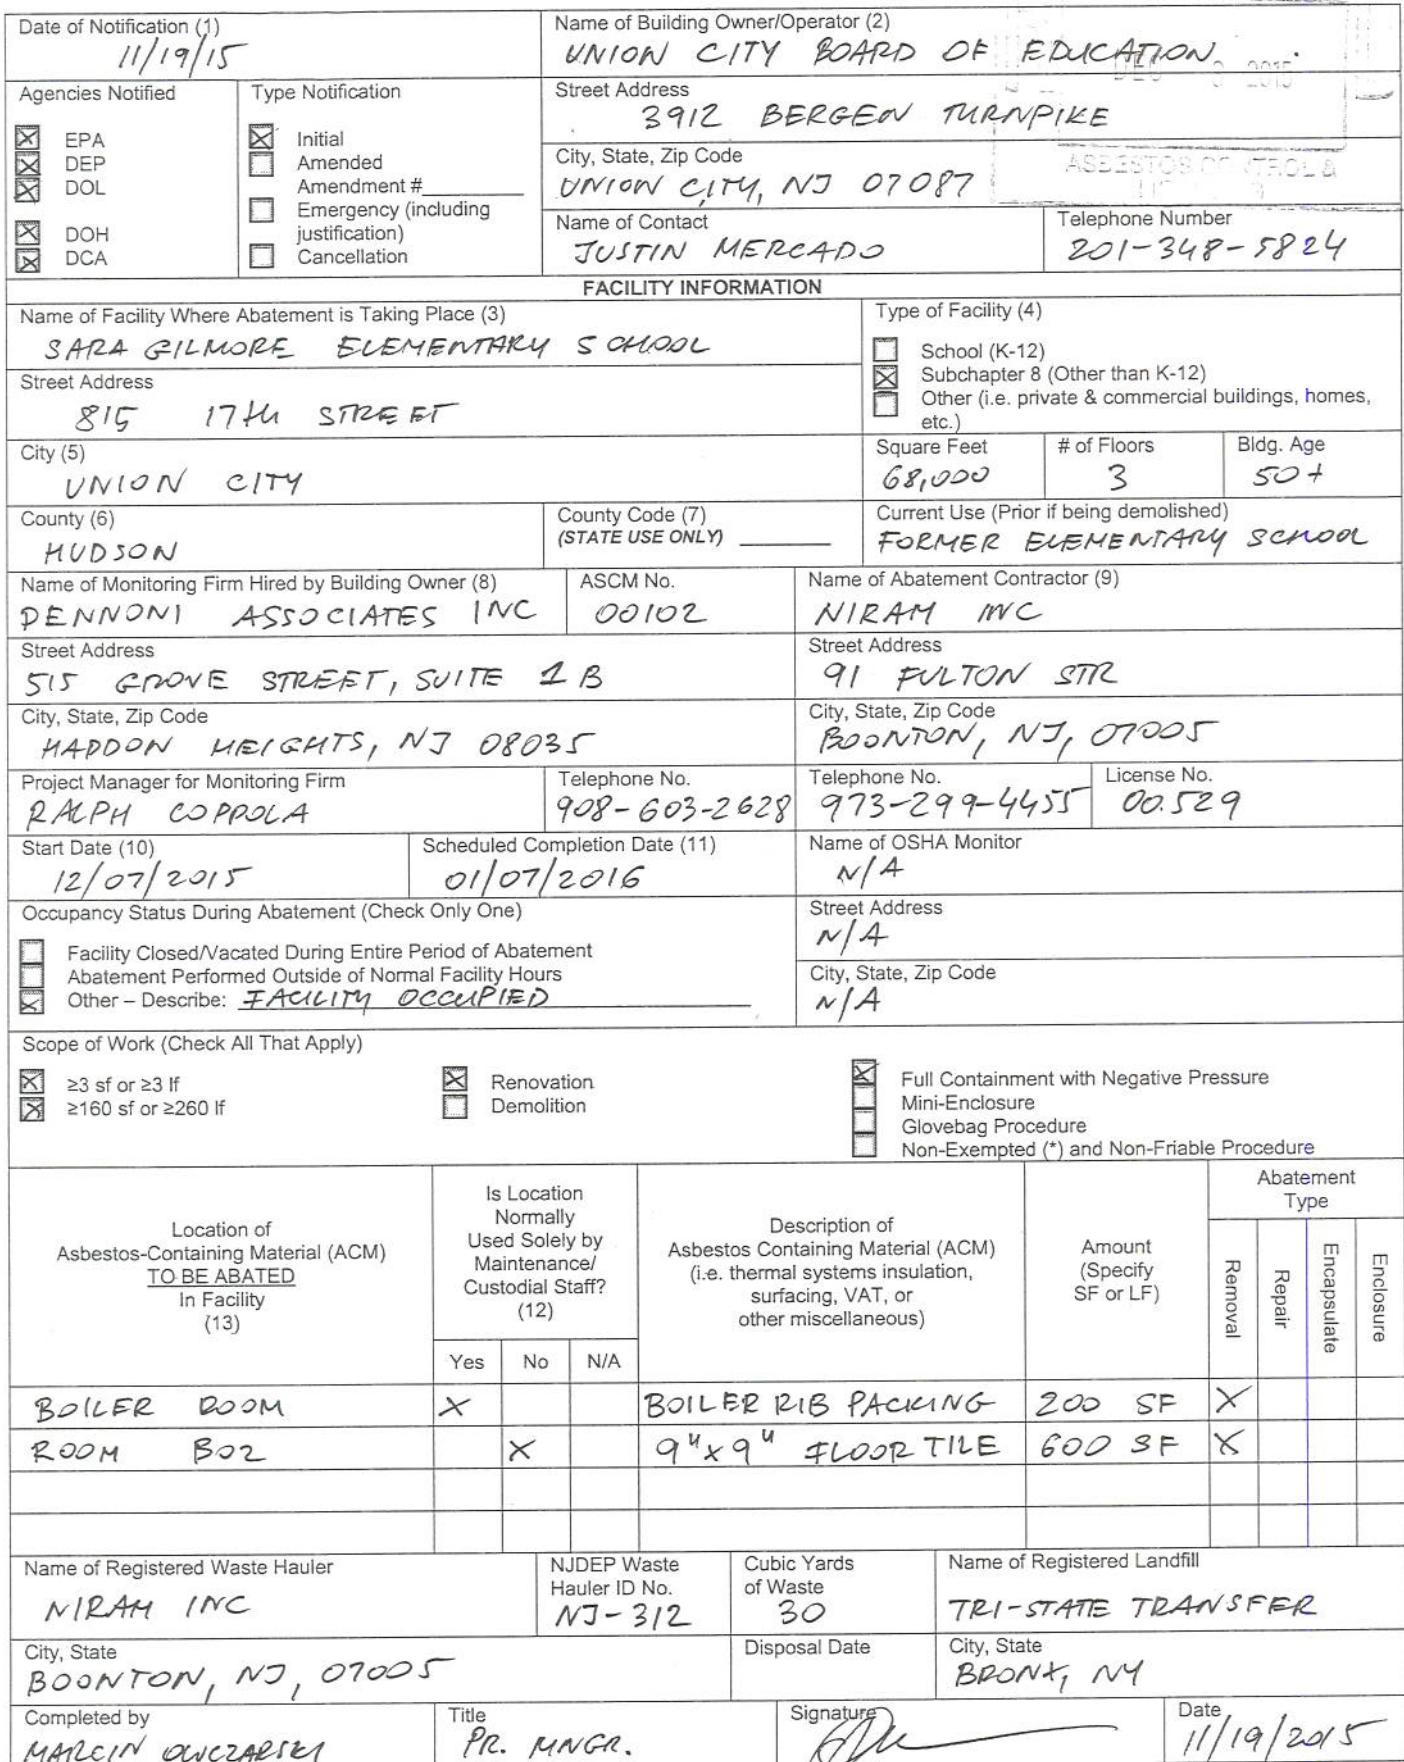 Date of Notification (1)
11/19/15
Name of Building Owner/Operator (2)
UNION CITY BOARD OF EDUCATION
Agencies Notified
EPA
DEP
DOL
DOH
DCA
Type Notification
Initial
Amended
Amendment #
Emergency (including
justification)
Cancellation
Street Address
3912 BERGEN TURNPIKE
City, State, Zip Code
UNION CITY, NJ 07087
Name of Contact
JUSTIN MERCADO
Telephone Number
201-348-5824
DEC 2015
ASBESTOS CONTROL &
FACILITY INFORMATION
Name of Facility Where Abatement is Taking Place (3)
SARA GILMORE ELEMENTARY SCHOOL
Type of Facility (4)
School (K-12)
Subchapter 8 (Other than K-12)
Other (i.e. private & commercial buildings, homes,
etc.)
Street Address
815 17th STREET
City (5)
UNION CITY
Square Feet
68,000
# of Floors
3
Bldg. Age
50+
County (6)
HUDSON
County Code (7)
(STATE USE ONLY)
Current Use (Prior if being demolished)
FORMER ELEMENTARY SCHOOL
Name of Monitoring Firm Hired by Building Owner (8)
PENNONI ASSOCIATES INC
ASCM No.
00102
Name of Abatement Contractor (9)
NIRAM INC
Street Address
515 GROVE STREET, SUITE 1B
Street Address
91 FULTON STR
City, State, Zip Code
HADDON HEIGHTS, NJ 08035
City, State, Zip Code
BOONTON, NJ, 07005
Project Manager for Monitoring Firm
RALPH COPPOLA
Telephone No.
908-603-2628
Telephone No.
973-299-4455
License No.
00529
Start Date (10)
12/07/2015
Scheduled Completion Date (11)
01/07/2016
Name of OSHA Monitor
N/A
Occupancy Status During Abatement (Check Only One)
Facility Closed/Vacated During Entire Period of Abatement
Abatement Performed Outside of Normal Facility Hours
Other – Describe: FACILITY OCCUPIED
Street Address
N/A
City, State, Zip Code
N/A
Scope of Work (Check All That Apply)
≥3 sf or ≥3 lf
≥160 sf or ≥260 lf
Renovation
Demolition
Full Containment with Negative Pressure
Mini-Enclosure
Glovebag Procedure
Non-Exempted (*) and Non-Friable Procedure
Location of
Asbestos-Containing Material (ACM)
TO BE ABATED
In Facility
(13)
Is Location
Normally
Used Solely by
Maintenance/
Custodial Staff?
(12)
Yes No N/A
Description of
Asbestos Containing Material (ACM)
(i.e. thermal systems insulation,
surfacing, VAT, or
other miscellaneous)
Amount
(Specify
SF or LF)
Abatement
Type
Removal
Repair
Encapsulate
Enclosure
BOILER ROOM X BOILER RIB PACKING 200 SF X
ROOM B02 X 9"x9" FLOOR TILE 600 SF X
Name of Registered Waste Hauler
NIRAM INC
NJDEP Waste
Hauler ID No.
NJ-312
Cubic Yards
of Waste
30
Name of Registered Landfill
TRI-STATE TRANSFER
City, State
BOONTON, NJ, 07005
Disposal Date
City, State
BRONX, NY
Completed by
MARCIN OWCZARSKI
Title
PR. MNGR.
Signature
Date
11/19/2015